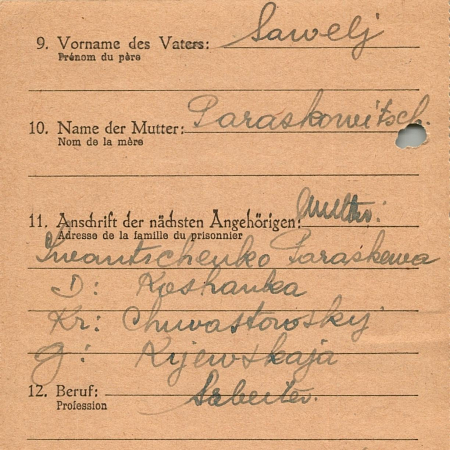 9. Vorname des Vaters: Sawelj
Prénom du père
10. Name der Mutter: Paraskowitsch.
Nom de la mère
11. Anschrift der nächsten Angehörigen: Mutter:
Adresse de la famille du prisonnier
Iwantschenko Paraskewa
D: Koshanka
Kr: Chwastowskij
G: Kijewskaja
12. Beruf: Arbeiter.
Profession